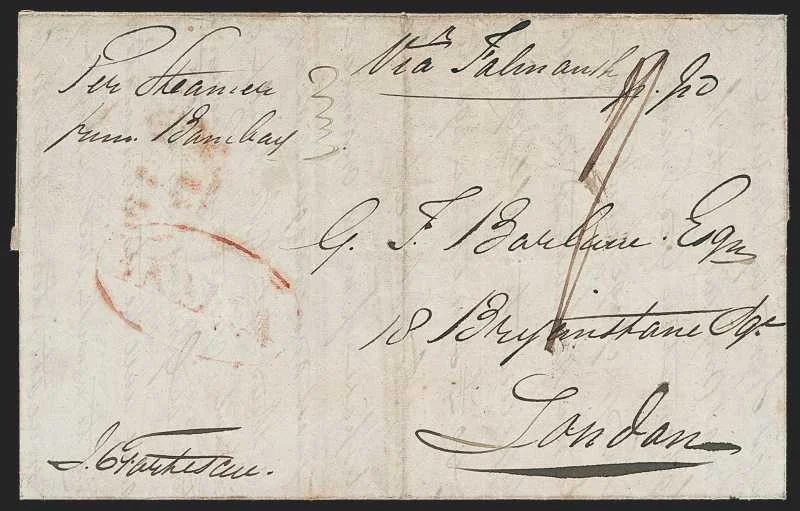 Via Falmouth
p. po
Per Steamer
from Bombay
G. F. Barlow Esqr
18 Bryanstone Sqr
London
J. C. Fortescue.
PAID